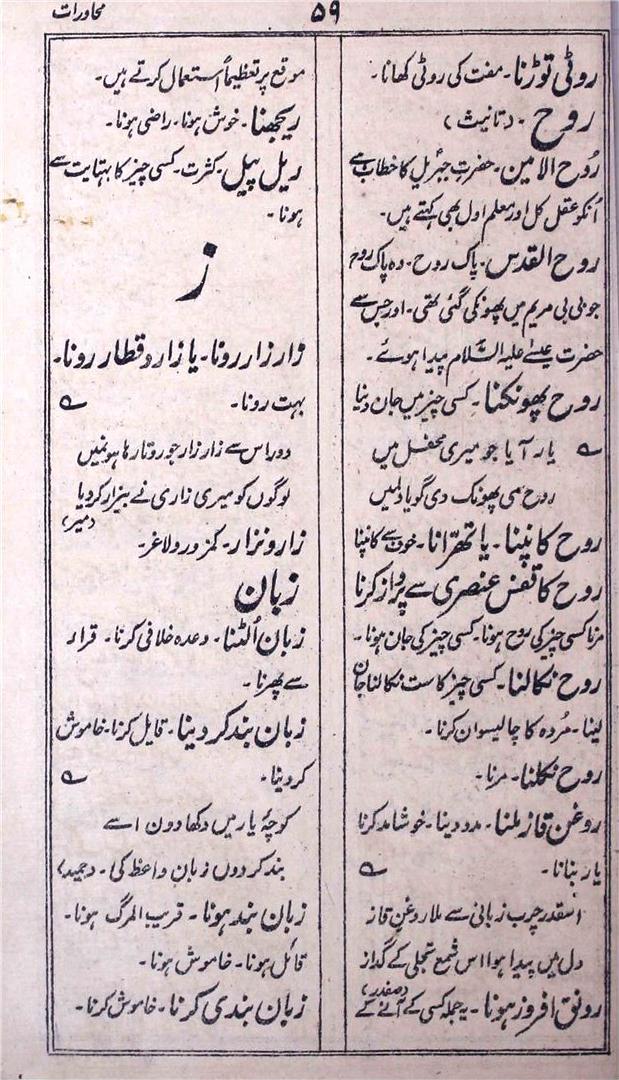 ۵۹
محاورات
روٹی توڑنا۔ مفت کی روٹی کھانا۔
روح۔ (تانیث)
رُوح الامین۔ حضرت جبرئیل کا خطاب ہے
اُنکو عقل کل اور معلم اول بھی کہتے ہیں۔
روح القدس۔ پاک روح۔ وہ پاک روح
جو بی بی مریم میں پھونکی گئی تھی۔ اور جس سے
حضرت عیسےٰ علیہ السلام پیدا ہوئے۔
روح پھونکنا۔ کسی چیز میں جان دینا
؎ یار آیا جو میری محفل میں
روح سی پھونک دی گویا دلمیں
روح کانپنا۔ یا تھرّانا۔ خوف سے کانپنا
روح کا قفس عنصری سے پرواز کرنا
مرنا کسی چیز کی روح ہونا۔ کسی چیز کی جان ہونا۔
روح نکالنا۔ کسی چیز کا ست نکالنا جان
لینا۔ مُردہ کا چالیسواں کرنا۔
روح نکلنا۔ مرنا۔
روغن قاز ملنا۔ مدد دینا۔ خوشامد کرنا
یار بنانا۔ ؎
اسقدر چرب زبانی سے ملا روغنِ قاز
دل میں پیدا ہوا اس شمع تجلی کے گداز
(صفدر)
رونق افروز ہونا۔ یہ جملہ کسی کے آنے کے
موقع پر تعظیماً استعمال کرتے ہیں۔
ریجھنا۔ خوش ہونا۔ راضی ہونا۔
ریل پیل۔ کثرت۔ کسی چیز کا بہتایت سے
ہونا۔
ز
زار زار رونا۔ یا زار و قطار رونا۔
بہت رونا۔ ؎
دوراس سے زار زار جو روتا رہا ہونمیں
لوگوں کو میری زاری نے بیزار کر دیا
(میر)
زار و نزار۔ کمزور و لاغر۔
زبان
زبان اُلٹنا۔ وعدہ خلافی کرنا۔ قرار
سے پھرنا۔
زبان بند کر دینا۔ قایل کرنا۔ خاموش
کر دینا۔ ؎
کوچۂ یار میں دکھا دون اسے
بند کر دوں زبانِ واعظ کی۔ (حمید)
زبان بند ہونا۔ قریب المرگ ہونا۔
قائل ہونا۔ خاموش ہونا۔
زبان بندی کرنا۔ خاموش کرنا۔